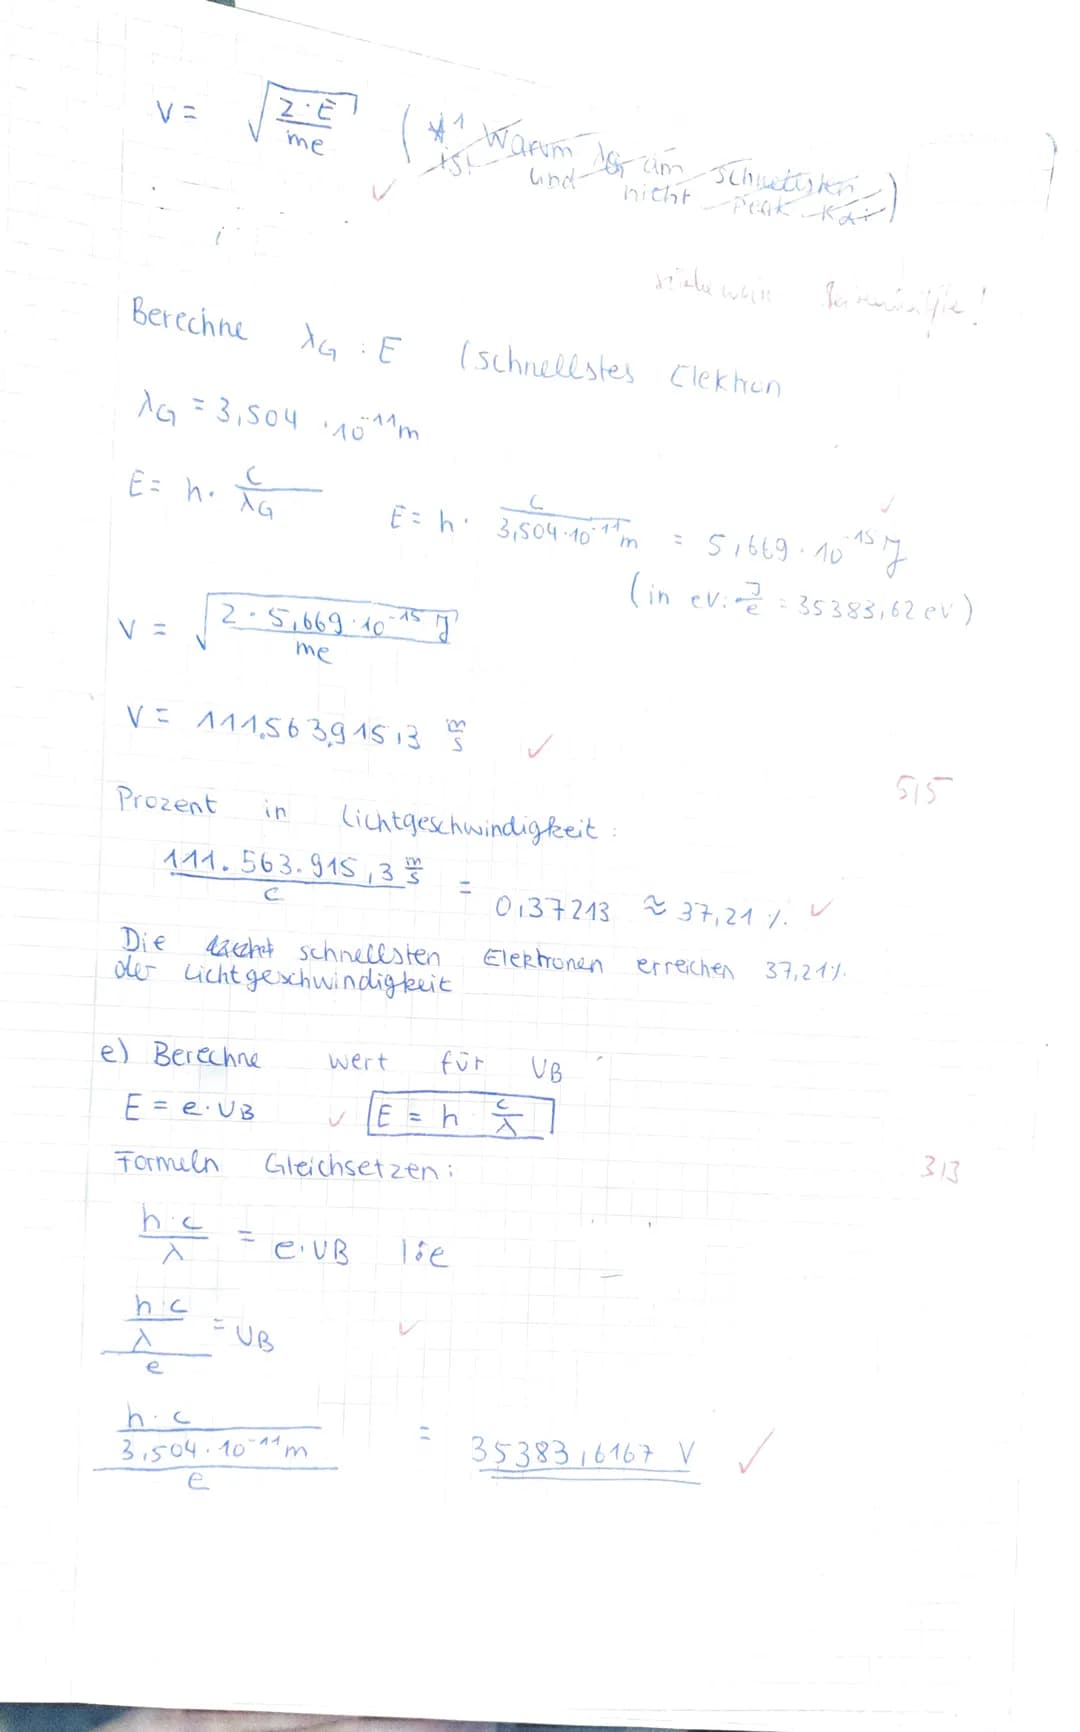 V = √(2·E / me) (*1 Warum λG am schnellsten
ist und nicht Peak Kα)
✓
siehe
Berechne λG : E (schnellstes Elektron
λG = 3,504 · 10⁻¹¹ m
E = h · c/λG E = h · c/(3,504·10⁻¹¹ m) = 5,669 · 10⁻¹⁵ J ✓
(in eV: J/e = 35383,62 eV)
V = √(2 · 5,669·10⁻¹⁵ J / me)
V = 111.563.915,3 m/s ✓
5/5
Prozent in Lichtgeschwindigkeit :
111.563.915,3 m/s / c = 0,37213 ≈ 37,21 %. ✓
Die schnellsten Elektronen erreichen 37,21%.
der Lichtgeschwindigkeit
e) Berechne wert für UB
E = e·UB ✓ E = h · c/λ
Formeln Gleichsetzen:
3/3
h·c/λ = e·UB |:e
(h·c/λ)/e = UB ✓
(h·c/(3,504·10⁻¹¹ m))/e = 35383,6167 V ✓